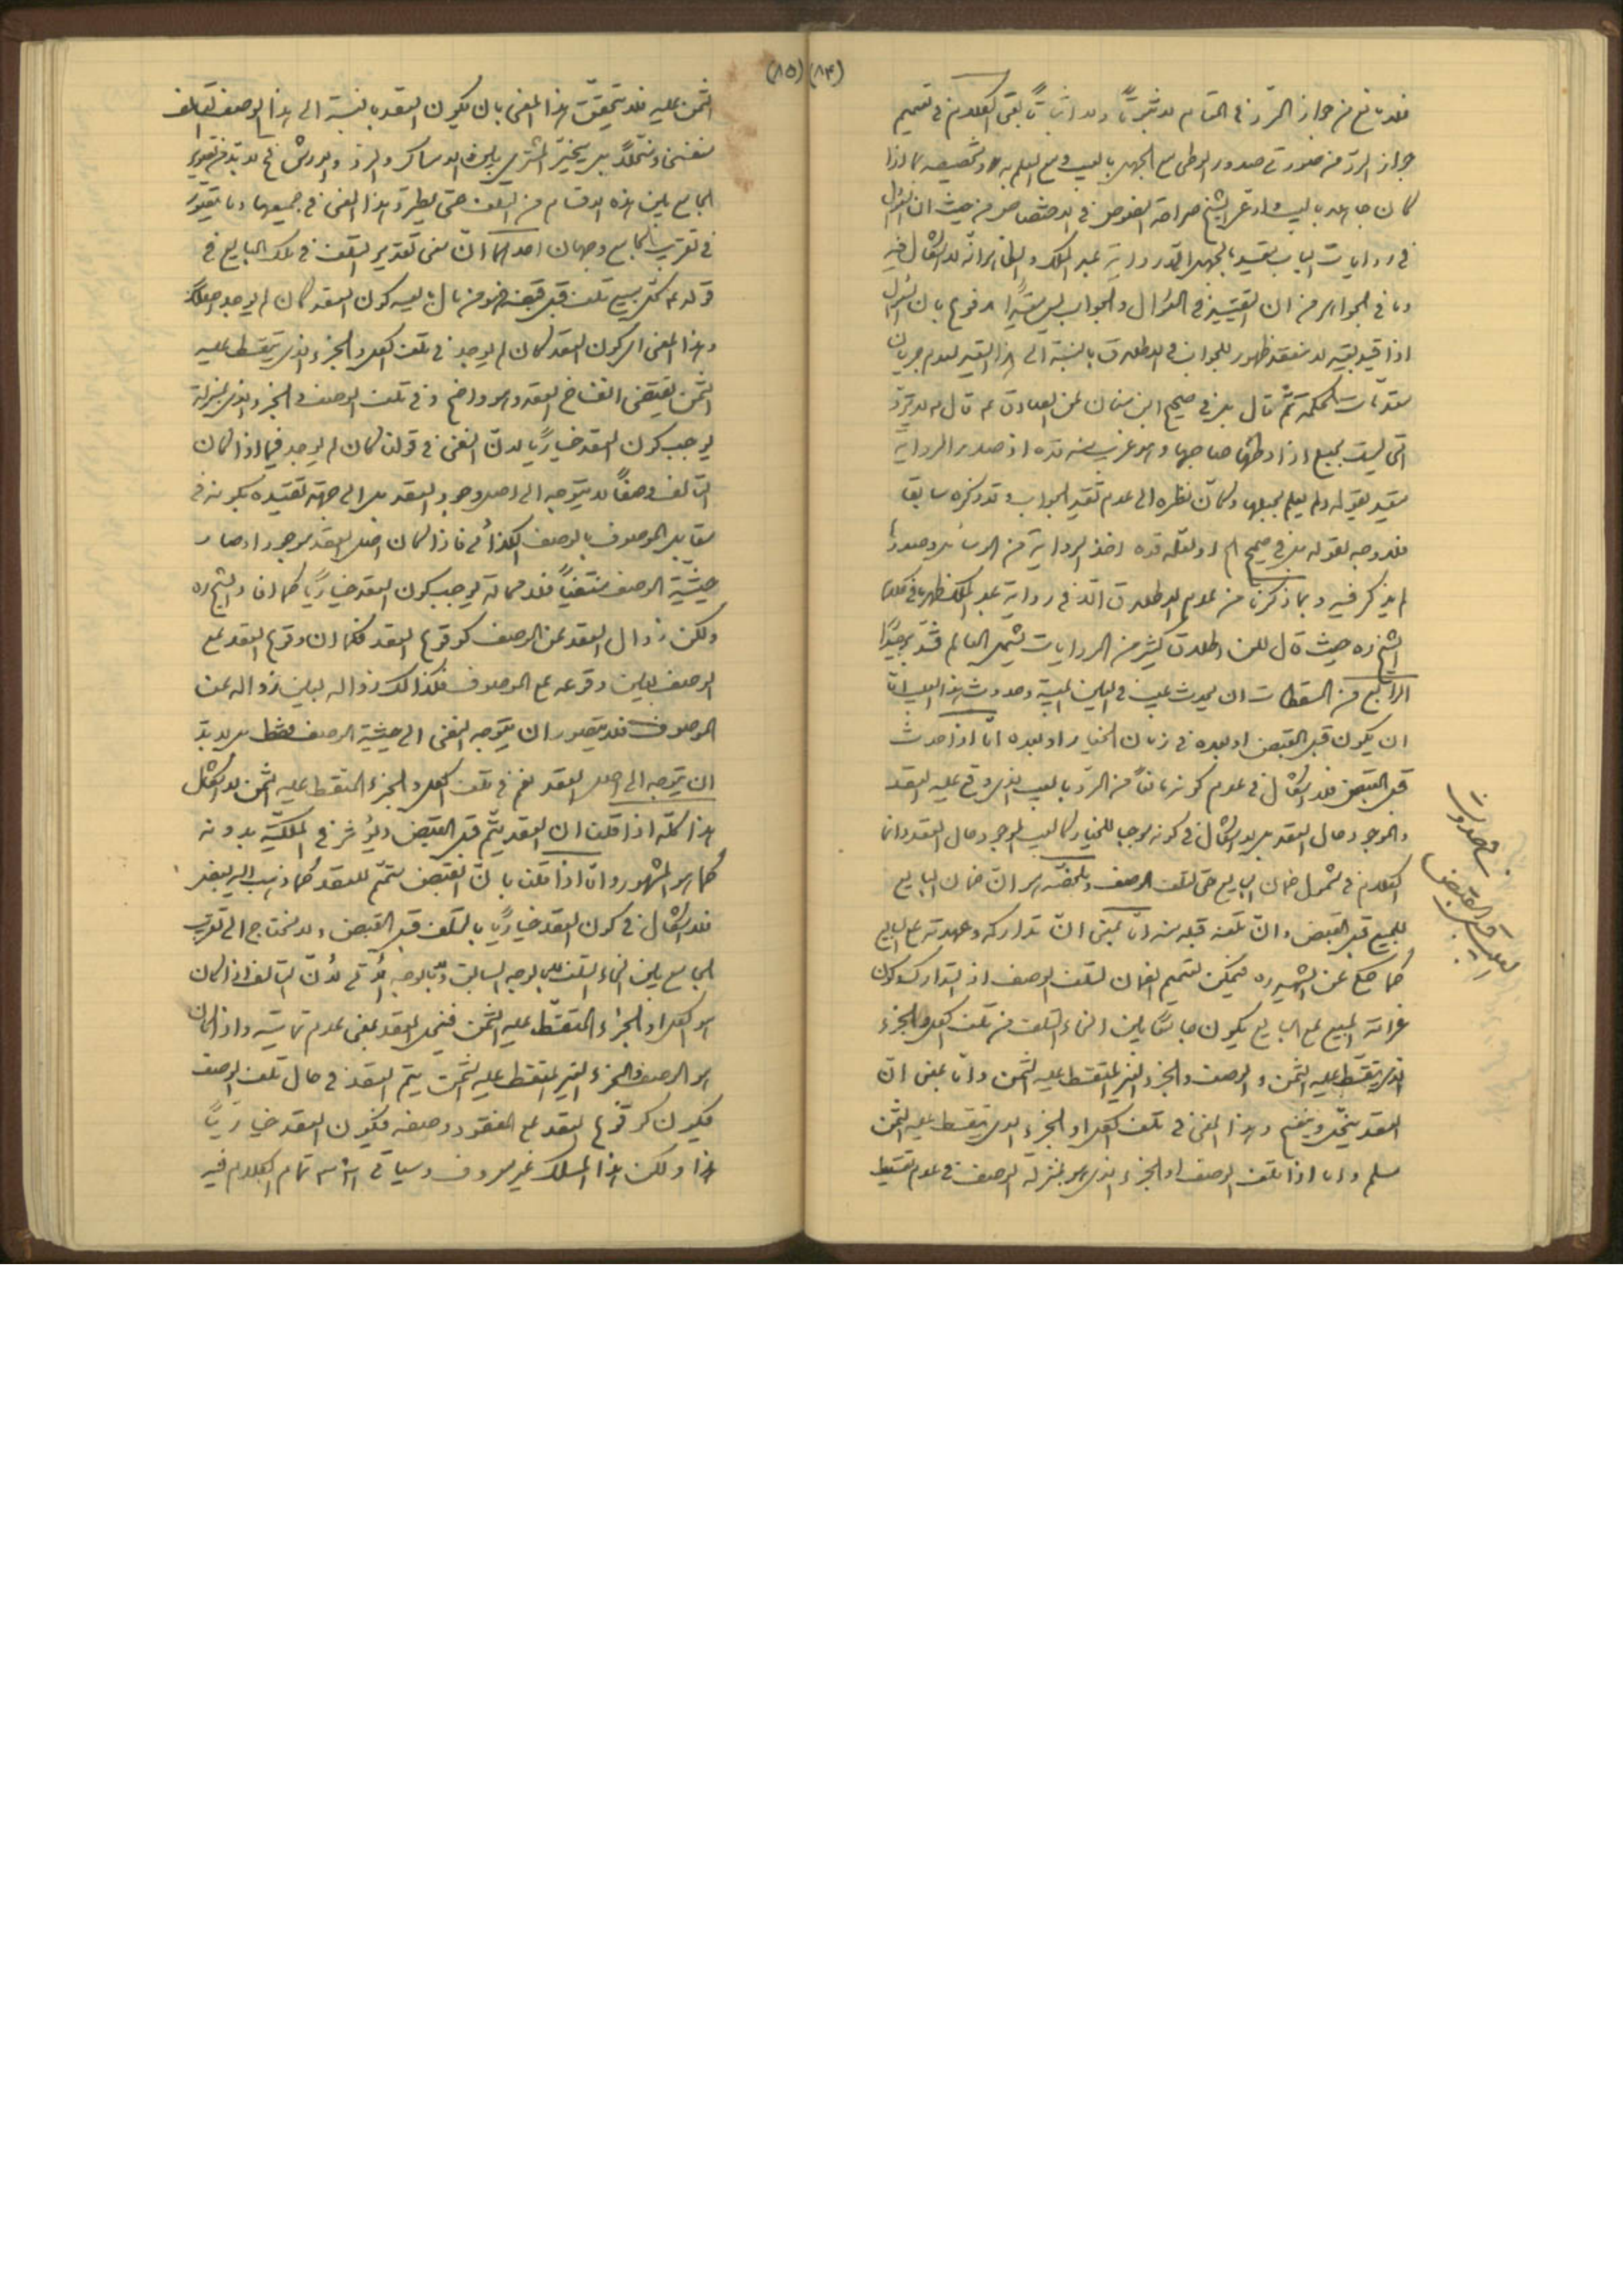 (٨٤)
فلا مانع من جواز الرد في المقام لا ثبوتاً ولا اثباتاً بقي الكلام في تعميم
جواز الرد من صورتي صدور الوطي مع الجهل بالعيب ومع العلم به وتخصيصه بما اذا
كان جاهلا بالعيب وادعى الشيخ صراحة النصوص في الاختصاص من حيث ان السؤال
في روايات الباب مقيد بالجهل الا في رواية عبد الملك والظاهر انه لا اشكال فيه
وما في الجواهر من ان التقييد في السؤال والجواب ليس مقيداً مدفوع بان السؤال
اذا قيد بقيد لا ينعقد ظهور للجواب في الاطلاق بالنسبة الى هذا القيد لعدم جريان
مقدمات الحكمة ثم قال بل في صحيح ابن سنان عن الصادق ع قال ع لا ترد
التي ليست بحبلى اذا وطئها صاحبها وهو غريب منه قده اذ صدر الرواية
مقيد بقوله ولم يعلم بحبلها وكان نظره الى عدم تقيد الجواب وقد ذكره سابقا
فلا وجه لقوله بل في صحيح الخ او لعله قده اخذ الرواية من الوسائل وصدرها
لم يذكر فيه وبما ذكرنا من عدم الاطلاق الا في رواية عبد الملك ظهر ما في كلام
الشيخ ره حيث قال لكن اطلاق كثير من الروايات يشمل العالم فتدبر جيداً
الرابع من المسقطات ان يحدث عيب في العين المبيعة وحدوث هذا العيب اما
ان يكون قبل القبض او بعده في زمان الخيار او بعده اما اذا حدث
قبل القبض فلا اشكال في عدم كونه مانعاً من الرد بالعيب الذي وقع عليه العقد
والموجود حال العقد بل لا اشكال في كونه موجبا للخيار كالعيب الموجود حال العقد وانما
الكلام في شمول ضمان البايع حتى لتلف الوصف وملخصه هو ان ضمان البايع
للمبيع قبل القبض وان تلفه قبله منه اما بمعنى ان تداركه وعهدته على البايع
كما حكي عن الشهيد ره فيمكن تعميم الضمان لتلف الوصف اذ التدارك وكون
غرامة المبيع على البايع يكون جامعاً بين انحاء التلف من تلف الكل والجزء
الذي يتقسط عليه الثمن والوصف والجزء الغير المتقسط عليه الثمن واما بمعنى ان
العقد ينحل وينفسخ وهذا المعنى في تلف الكل او الجزء الذي يتقسط عليه الثمن
مسلم واما اذا تلف الوصف او الجزء الذي هو بمنزلة الوصف في عدم تقسيط
في حدوث
العيب قبل القبض
(٨٥)
الثمن عليه فلا يتحقق هذا المعنى بان يكون العقد بالنسبة الى هذا الوصف التالف
منفسخا ومنحلاً بل يتخير المشتري بين الامساك والرد والارش فح لا بد من تصوير
الجامع بين هذه الاقسام من التلف حتى يطرد هذا المعنى في جميعها وما يتصور
في تقريب الجامع وجهان احدهما ان معنى تقدير التلف في ملك البايع في
قوله ع كل مبيع تلف قبل قبضه فهو من مال بايعه كون العقد كان لم يوجد اصلاً
وهذا المعنى اي كون العقد كان لم يوجد في تلف الكل والجزء الذي يتقسط عليه
الثمن يقتضي انفساخ العقد وهو واضح وفي تلف الوصف والجزء الذي بمنزلته
يوجب كون العقد خيارياً لان النفي في قولنا كان لم يوجد فيما اذا كان
التالف وصفاً لا يتوجه الى اصل وجود العقد بل الى جهة تقيده بكونه في
مقابل الموصوف بالوصف الكذائي فاذا كان اصل العقد موجودا وصار
حيثية الوصف منتفياً فلا محالة يوجب كون العقد خيارياً كما افاد الشيخ ره
ولكن زوال العقد عن الوصف كوقوع العقد فكما ان وقوع العقد على
الوصف بعين وقوعه على الموصوف فكذالك زواله بعين زواله عن
الموصوف فلا يتصور ان يتوجه النفي الى حيثية الوصف فقط بل لا بد
ان يتوجه الى اصل العقد نعم في تلف الكل والجزء المتقسط عليه الثمن لا اشكال
هذا كله اذا قلنا ان العقد يتم قبل القبض ويؤثر في الملكية بدونه
كما هو المشهور واما اذا قلنا بان القبض متمم للعقد كما ذهب اليه بعض
فلا اشكال في كون العقد خيارياً بالتلف قبل القبض ولا نحتاج الى تقريب
الجامع بين انحاء التلف لا بالوجه السابق ولا بالوجه الآتي لان التالف اذا كان
هو الكل او الجزء المتقسط عليه الثمن فينحل العقد بمعنى عدم تماميته واذا كان
هو الوصف والجزء الغير المتقسط عليه الثمن يتم العقد في حال تلف الوصف
فيكون كوقوع العقد على المفقود وصفه فيكون العقد خيارياً
هذا ولكن هذا المسلك غير معروف وسياتي انشاء الله تمام الكلام فيه